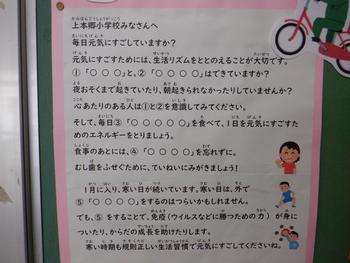 上本郷小学校みなさんへ
毎日元気にすごしていますか？
元気にすごすためには、生活リズムをととのえることが大切です。
①「○○○」と、②「○○○○」はできていますか？
夜おそくまで起きていたり、朝起きられなかったりしていませんか？
心あたりのある人は①と②を意識してみてください。
そして、毎日③「○○○○」を食べて、1日を元気にすごすた
めのエネルギーをとりましょう。
食事のあとには、④「○○○○」を忘れずに。
むし歯をふせぐために、ていねいにみがきましょう！
1月に入り、寒い日が続いています。寒い日は、外で
⑤「○○○○」をするのはつらいかもしれません。
でも、⑤をすることで、免疫（ウイルスなどに勝つための力）が身に
ついたり、からだの成長を助けたりします。
寒い時期も規則正しい生活習慣で元気にすごしてくださいね。